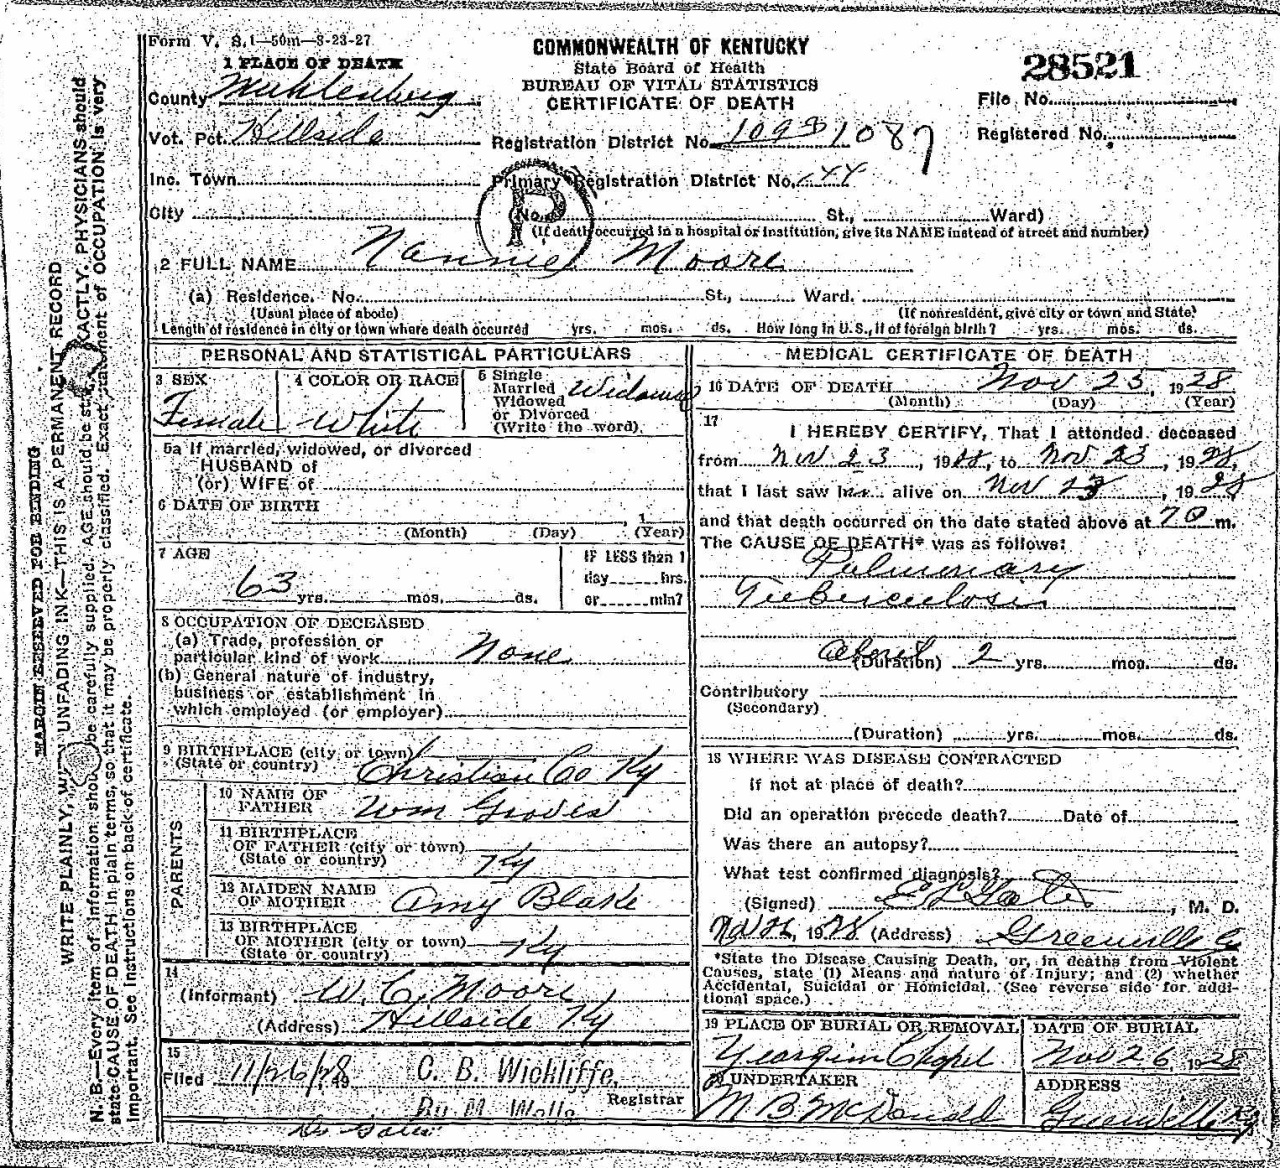 Form V. S. 1—50m—8-23-27
COMMONWEALTH OF KENTUCKY
State Board of Health
BUREAU OF VITAL STATISTICS
CERTIFICATE OF DEATH
28521
File No.
Registered No.
1 PLACE OF DEATH
County Muhlenberg
Vot. Pct. Hillside
Registration District No. 1087
Inc. Town
Primary Registration District No.
City
(No. St., Ward)
(If death occurred in a hospital or institution, give its NAME instead of street and number)
P
2 FULL NAME Nannie Moore
(a) Residence. No. St., Ward.
(Usual place of abode) (If nonresident, give city or town and State)
Length of residence in city or town where death occurred yrs. mos. ds. How long in U.S., if of foreign birth? yrs. mos. ds.
PERSONAL AND STATISTICAL PARTICULARS
3 SEX
Female
4 COLOR OR RACE
White
5 Single
Married
Widowed
or Divorced
(Write the word)
Widowed
5a If married, widowed, or divorced
HUSBAND of
(or) WIFE of
6 DATE OF BIRTH
, 1
(Month) (Day) (Year)
7 AGE
63 yrs. mos. ds.
IF LESS than 1
day hrs.
or min?
8 OCCUPATION OF DECEASED
(a) Trade, profession or
particular kind of work None
(b) General nature of industry,
business or establishment in
which employed (or employer)
9 BIRTHPLACE (city or town)
(State or country) Christian Co Ky
PARENTS
10 NAME OF
FATHER Wm Groves
11 BIRTHPLACE
OF FATHER (city or town)
(State or country) Ky
12 MAIDEN NAME
OF MOTHER Amy Blake
13 BIRTHPLACE
OF MOTHER (city or town)
(State or country) Ky
14
(Informant) W. C. Moore
(Address) Hillside Ky
15
Filed 11/26/28
C. B. Wickliffe,
Registrar
By M. Wells
MEDICAL CERTIFICATE OF DEATH
16 DATE OF DEATH Nov 23, 1928
(Month) (Day) (Year)
17
I HEREBY CERTIFY, That I attended deceased
from Nov 23, 1928, to Nov 23, 1928,
that I last saw her alive on Nov 23, 1928
and that death occurred on the date stated above at m.
The CAUSE OF DEATH* was as follows:
Pulmonary
Tuberculosis
About
(Duration) 2 yrs. mos. ds.
Contributory
(Secondary)
(Duration) yrs. mos. ds.
18 WHERE WAS DISEASE CONTRACTED
If not at place of death?
Did an operation precede death? Date of
Was there an autopsy?
What test confirmed diagnosis?
(Signed) , M. D.
, 1928 (Address) Greenville
*State the Disease Causing Death, or, in deaths from Violent
Causes, state (1) Means and nature of Injury; and (2) whether
Accidental, Suicidal or Homicidal. (See reverse side for addi-
tional space.)
19 PLACE OF BURIAL OR REMOVAL
Yeargin Chapel
DATE OF BURIAL
Nov 26, 1928
20 UNDERTAKER
M B McDonald
ADDRESS
Greenville Ky
MARGIN RESERVED FOR BINDING
WRITE PLAINLY, WITH UNFADING INK—THIS IS A PERMANENT RECORD
N. B.—Every item of information should be carefully supplied. AGE should be stated EXACTLY. PHYSICIANS should
state CAUSE OF DEATH in plain terms, so that it may be properly classified. Exact statement of OCCUPATION is very
important. See instructions on back of certificate.